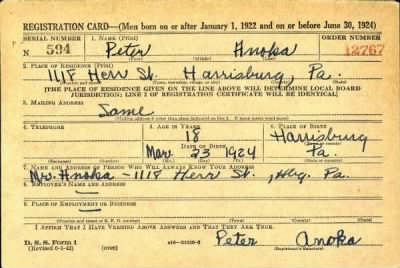 REGISTRATION CARD—(Men born on or after January 1, 1922 and on or before June 30, 1924)
SERIAL NUMBER 1. NAME (Print) ORDER NUMBER
N 594 Peter Anoka 12767
(First) (Middle) (Last)
2. PLACE OF RESIDENCE (Print)
1118 Herr St. Harrisburg, Pa.
(Number and street) (Town, township, village, or city) (County) (State)
[THE PLACE OF RESIDENCE GIVEN ON THE LINE ABOVE WILL DETERMINE LOCAL BOARD
JURISDICTION; LINE 2 OF REGISTRATION CERTIFICATE WILL BE IDENTICAL]
3. MAILING ADDRESS
Same
[Mailing address if other than place indicated on line 2. If same insert word same]
4. TELEPHONE 5. AGE IN YEARS 6. PLACE OF BIRTH
18 Harrisburg
DATE OF BIRTH (Town or county)
Mar. 23 1924 Pa.
(Exchange) (Number) (Mo.) (Day) (Yr.) (State or country)
7. NAME AND ADDRESS OF PERSON WHO WILL ALWAYS KNOW YOUR ADDRESS
Mr. Anoka - 1118 Herr St., Hbg. Pa.
8. EMPLOYER'S NAME AND ADDRESS
—
9. PLACE OF EMPLOYMENT OR BUSINESS
—
(Number and street or R. F. D. number) (Town) (County) (State)
I AFFIRM THAT I HAVE VERIFIED ABOVE ANSWERS AND THAT THEY ARE TRUE.
D. S. S. Form 1 Peter Anoka
(Revised 6-1-42) (over) (Registrant's signature)